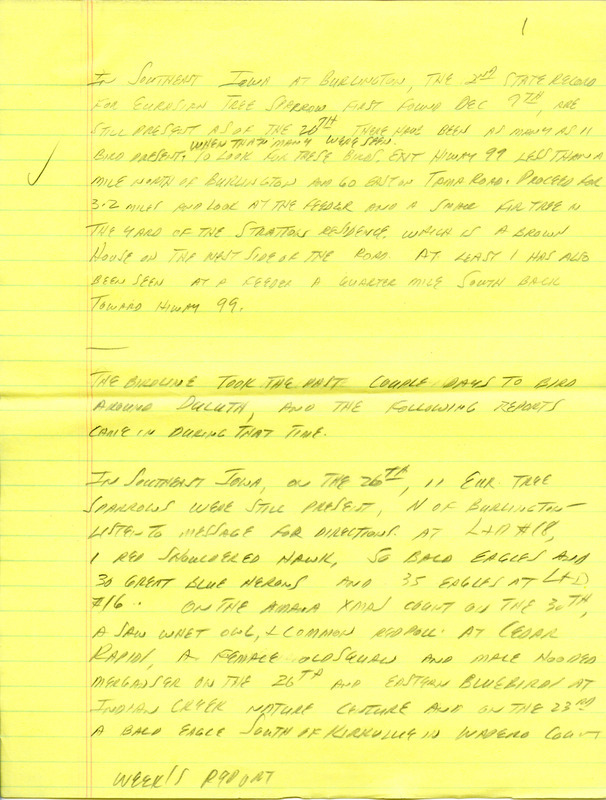 1
In Southeast Iowa at Burlington, the 2nd state record
for Eurasian Tree Sparrow, first found Dec 9th, are
still present as of the 20th. There have been as many as 11
when that many were seen.
bird present. To look for these birds, exit Hiway 99 less than a
mile north of Burlington and go east on Tama Road. Proceed for
3.2 miles and look at the feeder and a small fir tree in
the yard of the Stratton residence, which is a brown
house on the west side of the road. At least 1 has also
been seen at a feeder a quarter mile south back
toward Hiway 99.
The birdline took the past couple days to bird
around Duluth, and the following reports
came in during that time.
In Southeast Iowa, on the 26th, 11 Eur. Tree
Sparrows were still present, N of Burlington –
listen to message for directions. At L+D #18,
1 Red Shouldered Hawk, 50 Bald Eagles and
30 Great Blue Herons and 35 eagles at L+D
#16. On the Amana Xmas Count on the 30th,
a Saw whet owl, & Common Redpoll. At Cedar
Rapids, a female Oldsquaw and male Hooded
Merganser on the 26th and Eastern Bluebirds at
Indian Creek Nature Centure and on the 23rd
a Bald Eagle south of in County
Week's Report